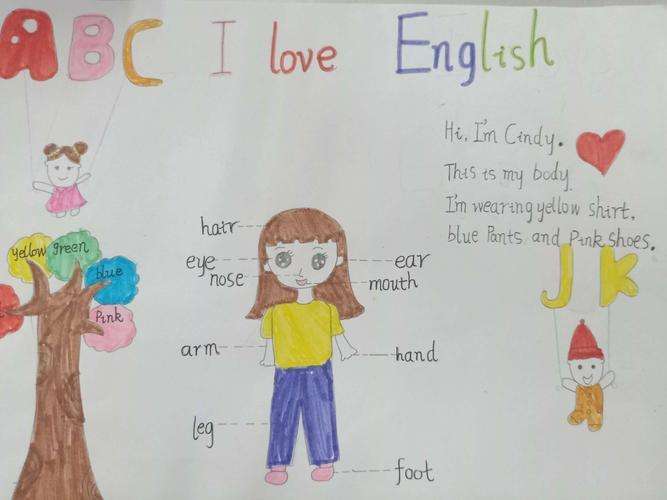 ABC I love English
Hi, I'm Cindy.
This is my body.
I'm wearing yellow shirt,
blue Pants and Pink shoes.
hair
eye
ear
nose
mouth
yellow
green
blue
Pink
arm
hand
leg
foot
JK